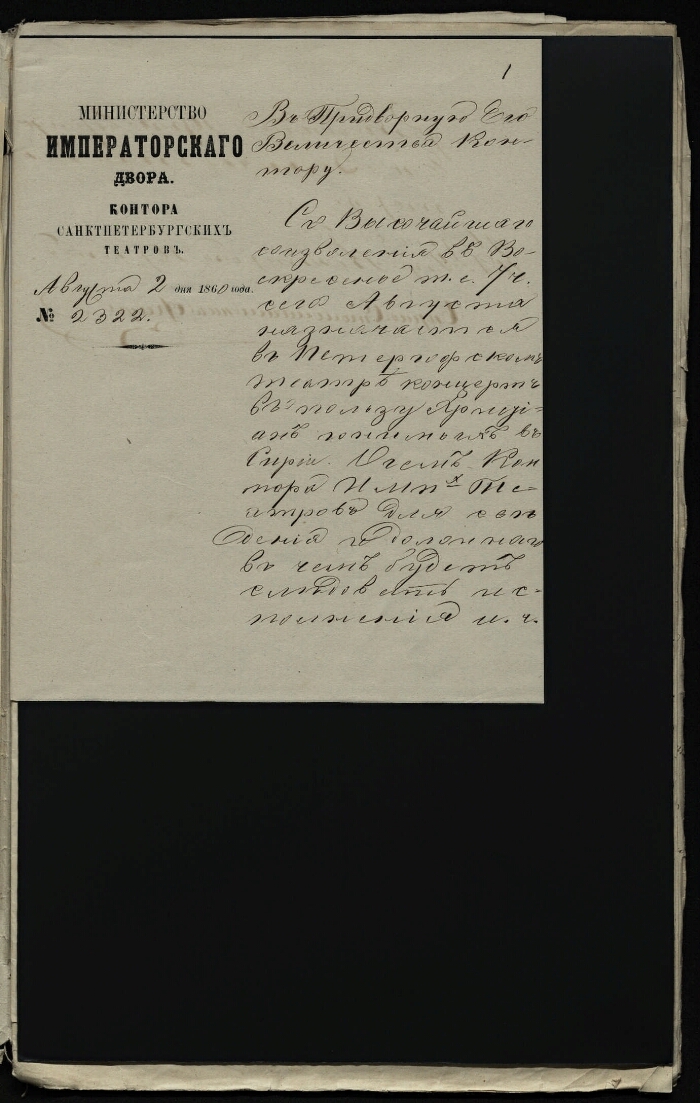 1
МИНИСТЕРСТВО
ИМПЕРАТОРСКАГО
ДВОРА.
КОНТОРА
САНКТПЕТЕРБУРГСКИХЪ
ТЕАТРОВЪ.
Августа 2 дня 1860 года.
№ 2322.
Въ Придворную Его
Величества Кон-
тору.
Съ Высочайшаго
соизволенія въ Во-
скресенье т. е. 7 ч.
сего Августа
назначается
въ Петергофскомъ
театрѣ концертъ
въ пользу Христі-
анъ въ
Сиріи. О чемъ Кон
тора Имп<sup>х</sup> Те-
атровъ для свѣ
денія и должнаго
въ чемъ будетъ
слѣдовать ис-
полненія и. ч.